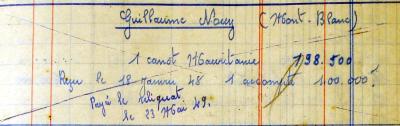 Guillaume Nouy (Mont-Blanc)
1 canot Mauritanie 198.500
Reçu le 18 Janvier 48 1 accompte 100.000 f
Payé le reliquat
le 23 Mai 49.